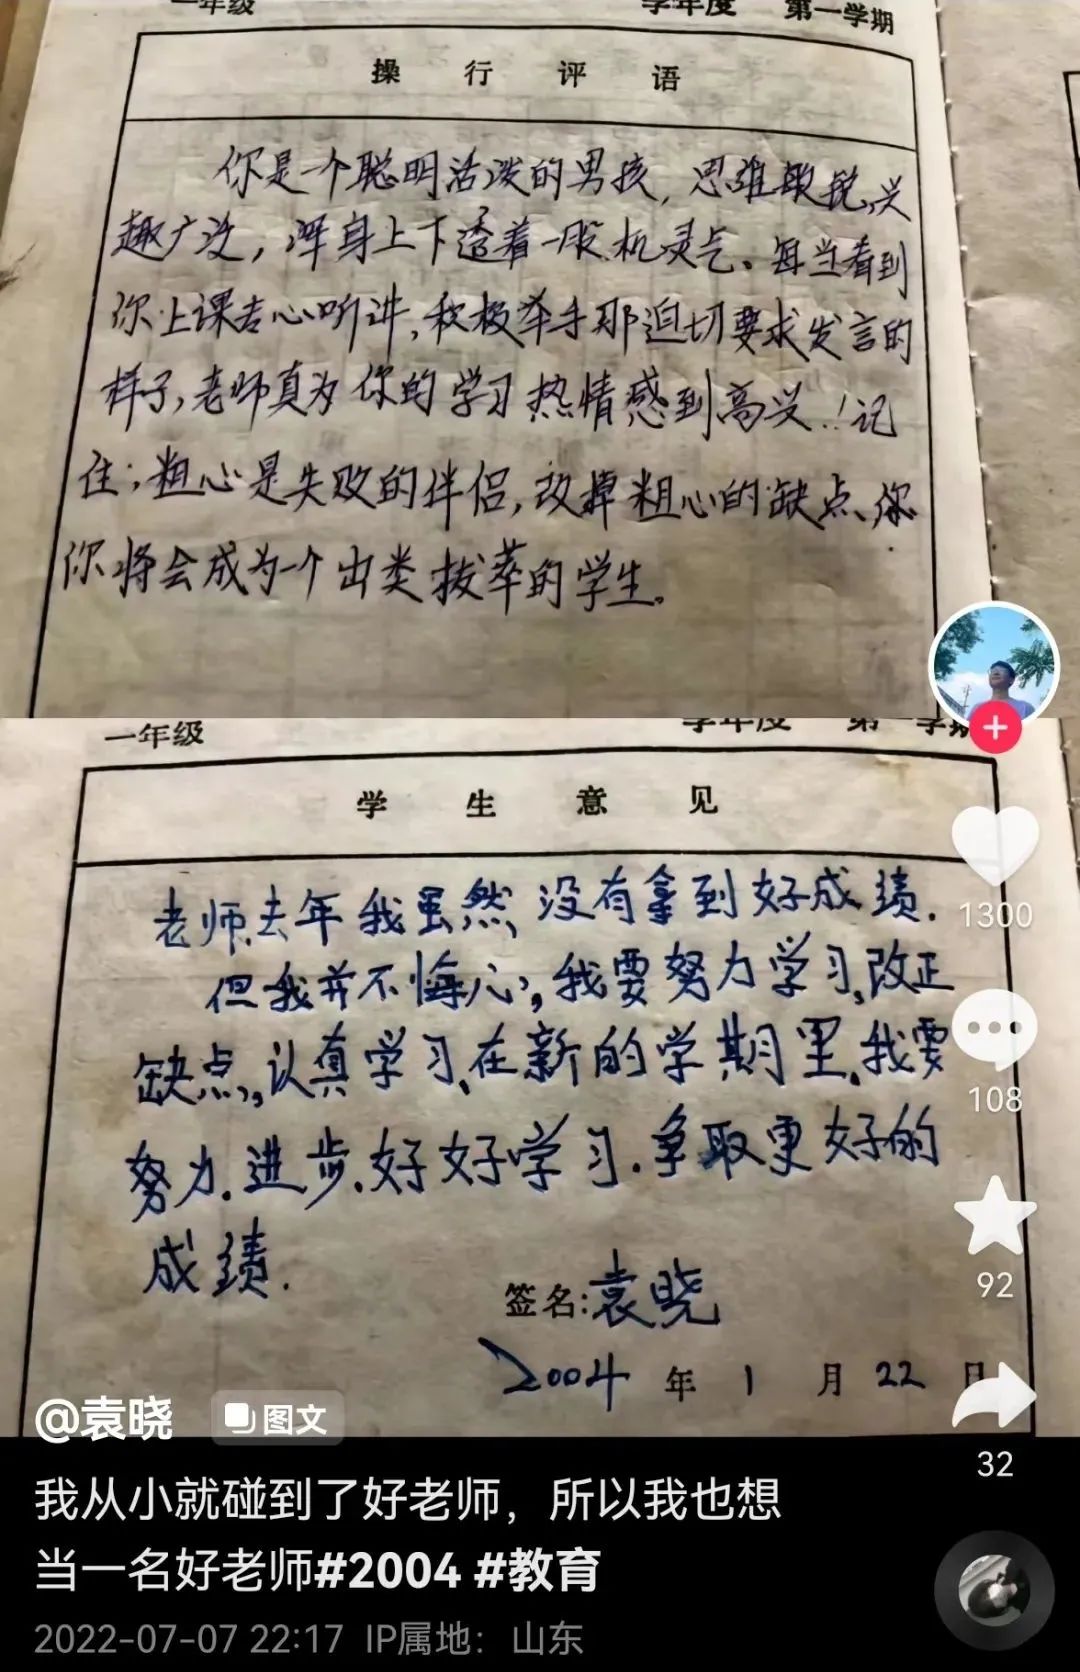 一年级 学年度 第一学期
操行评语
你是一个聪明活泼的男孩，思维敏锐，兴
趣广泛，浑身上下透着一股机灵气。每当看到
你上课专心听讲，积极举手那迫切要求发言的
样子，老师真为你的学习热情感到高兴！记
住；粗心是失败的伴侣，改掉粗心的缺点、你
你将会成为一个出类拔萃的学生。
一年级 学年度 第一学期
学生意见
老师，去年我虽然，没有拿到好成绩．
但我并不悔心，我要努力学习，改正
缺点，认真学习，在新的学期里，我要
努力．进步．好好学习．争取更好的
成绩．
签名：袁晓
2004年1月22日
1300
108
92
32
@袁晓 图文
我从小就碰到了好老师，所以我也想
当一名好老师#2004 #教育
2022-07-07 22:17 IP属地：山东